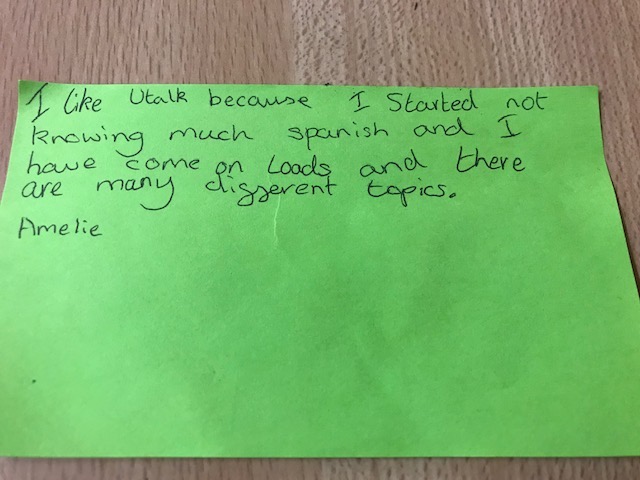 I like Utalk because I Started not
knowing much spanish and I
have come on Loads and there
are many different topics.
Amelie